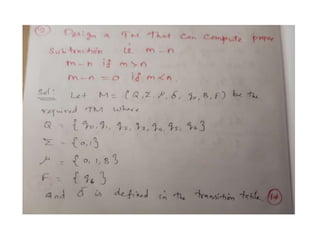 (10) Design a TM that can compute proper
subtraction ie m-n
m-n if m>n
m-n = 0 if m<n.
Sol: Let M = (Q, Σ, Γ, δ, q0, B, F) be the
required TM where
Q = {q0, q1, q2, q3, q4, q5, q6}
Σ = {0,1}
Γ = {0,1,B}
F = {q6}
and δ is defined in the transition table.